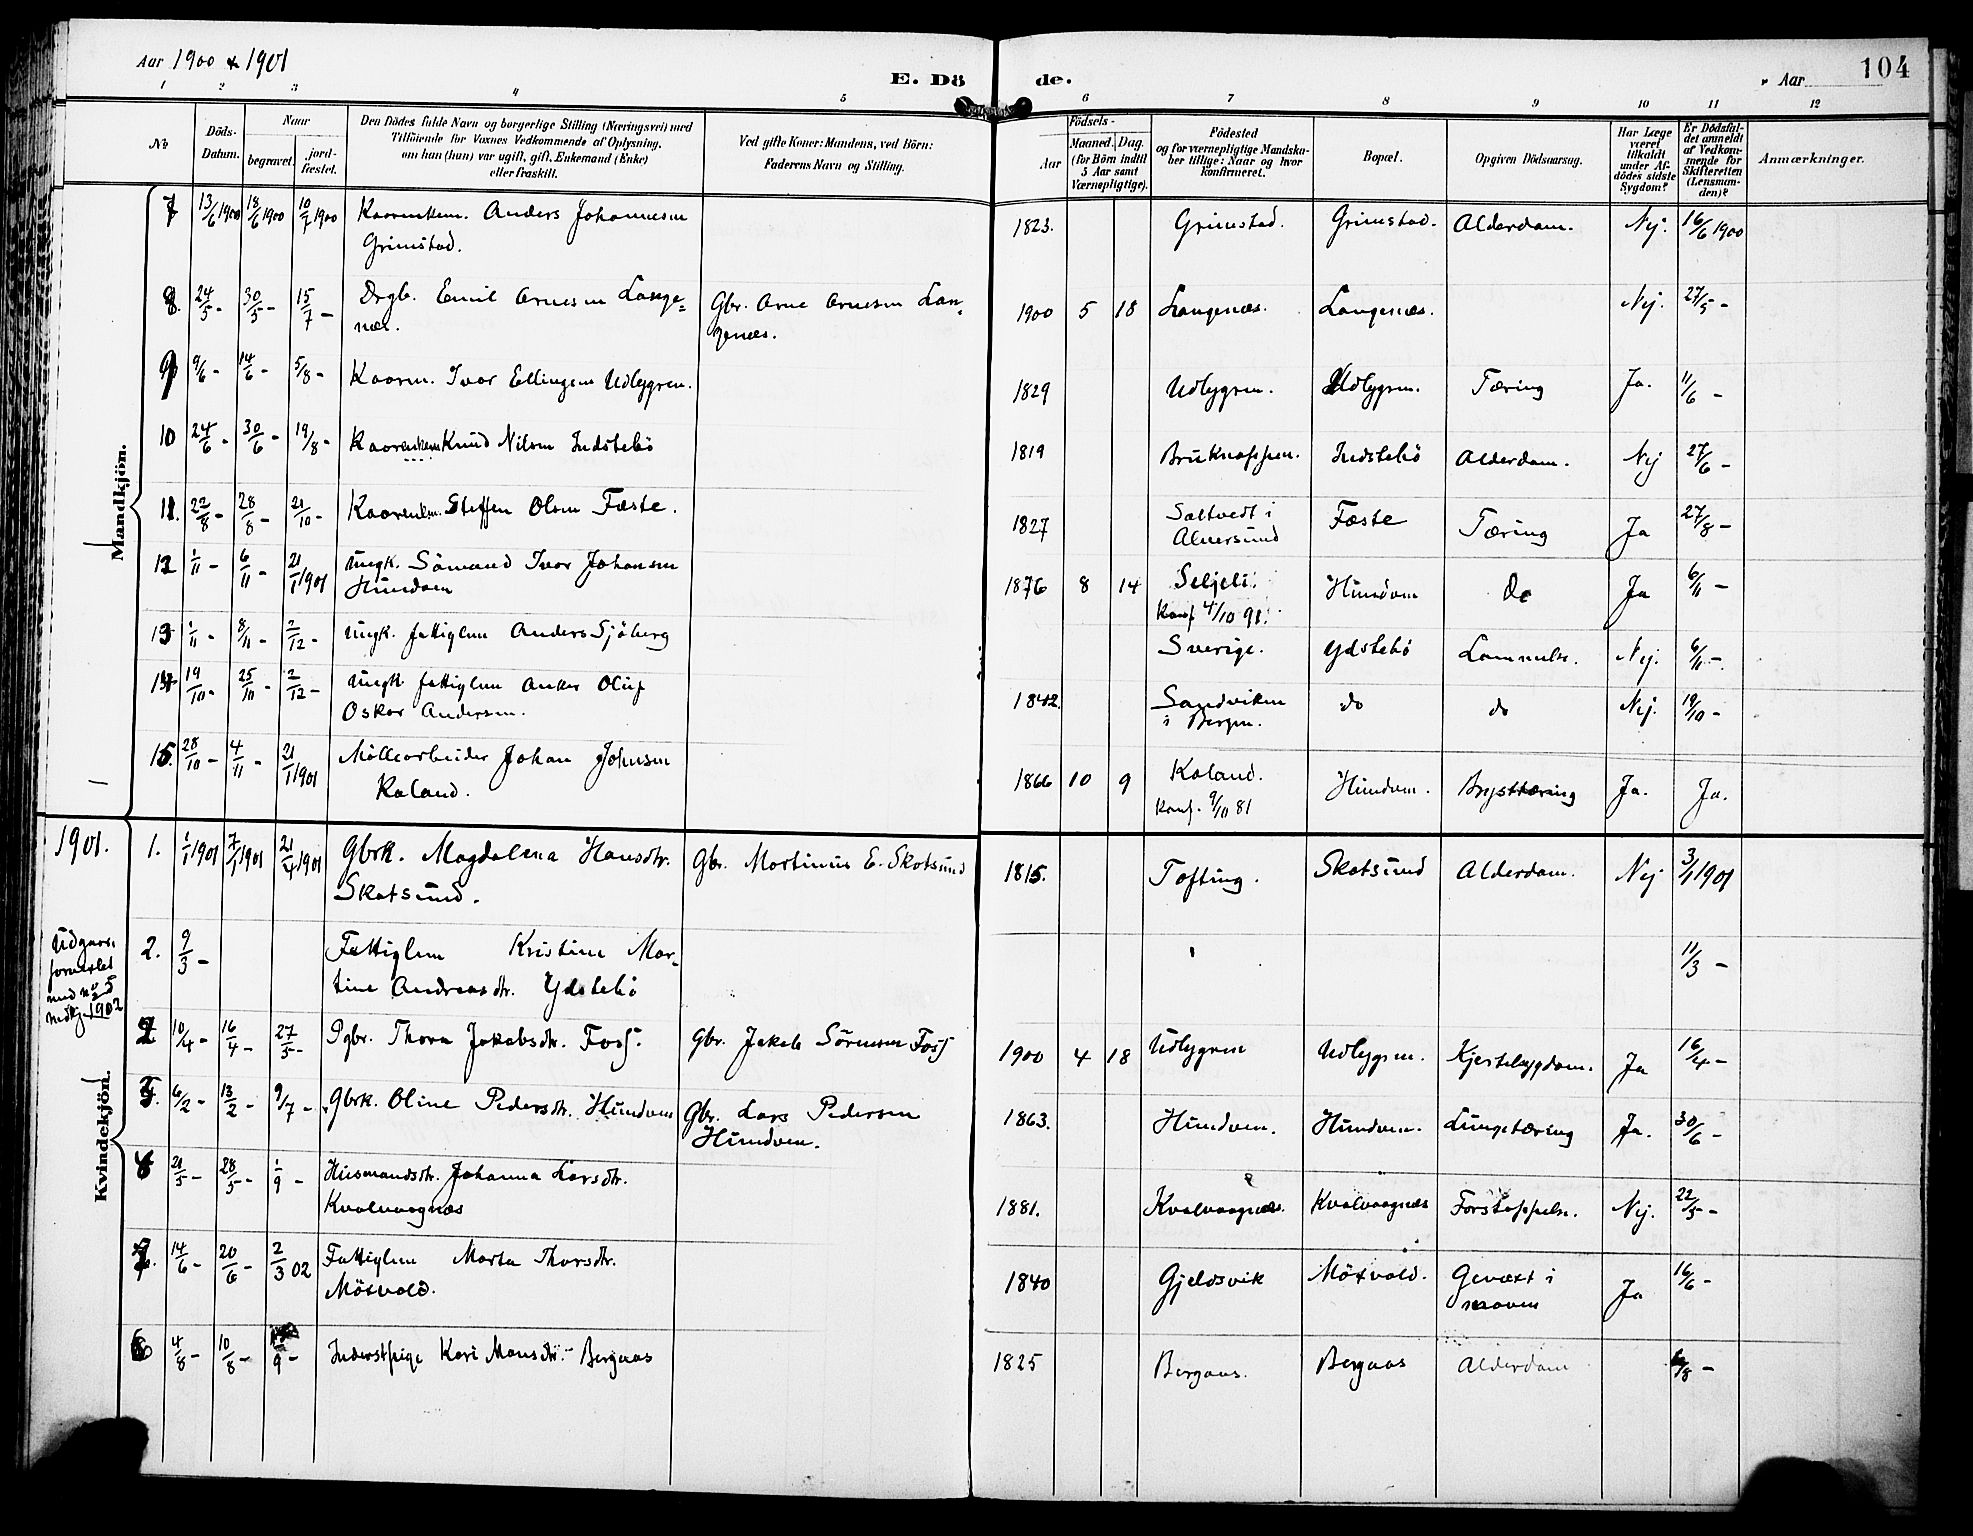 Aar 1900 & 1901
E. Dö de.
" Aar 104
1 2 3 4 5 6 7 8 9 10 11 12
No
Döds-Datum.
Naar
begravet.
jord-fæstet.
Den Dödes fulde Navn og borgerlige Stilling (Næringsvei) med
Tilföiende for Voxnes Vedkommende af Oplysning,
om han (hun) var ugift, gift, Enkemand (Enke)
eller fraskilt.
Ved gifte Koner: Mandens, ved Börn:
Faderens Navn og Stilling.
Födsels-
Aar
Maaned. Dag.
(for Börn indtil
5 Aar samt
Værnepligtige).
Födested
og for værnepligtige Mandska-
ber tillige: Naar og hvor
konfirmeret.
Bopæl.
Opgiven Dödsaarsag.
Har Læge
været
tilkaldt
under Af-
dödes sidste
Sygdom?
Er Dödsfal-
det anmeldt
af Vedkom-
mende for
Skifteretten
(Lensman-
den)?
Anmærkninger.
Mandkjön.
7 13/6 1900 18/6 1900 10/7 1900 Kaarenkem. Anders Johannesen
Grimstad.
1823. Grimstad. Grimstad. Alderdom. Nej. 16/6 1900
8. 24/5 - 30/5 - 15/7 - Drgb. Emil Arnesen Lange=
næs.
Gbr. Arne Arnesen Lan-
genæs.
1900 5 18 Langenæs. Langenæs. Nej. 27/5 -
9 9/6 - 14/6 - 5/8 - Kaarm. Ivar Ellingsen Udlyngen.
1829 Udlyngen. Udlyngen. Tæring Ja. 11/6 -
10 24/6 - 30/6 - 19/8 - Kaarenkem Knud Nilsen Indstebö
1819 Bruknappen. Indstebö Alderdom. Nej 27/6 -
11. 22/8 - 28/8 - 21/10 - Kaarenkm. Steffen Olsen Fæste.
1827 Saltvedt i
Alversund
Fæste Tæring Ja 27/8 -
12 1/11 - 6/11 - 21/1 1901 Ungk. Sömand Ivar Johansen
Hundven
1876 8 14 Seljeli.
Konf 4/10 91.
Hundven Do Ja 6/11 -
13 1/11 - 8/11 - 2/12 - Ungk. fattiglem Anders Sjöberg
Sverige. Ydstebö Lammelse. Nej. 6/11 -
14 19/10 - 25/10 - 2/12 - Ungk. fattiglem Anker Oluf
Oskar Andersen.
1842. Sandviken
i Bergen.
do do Nej. 19/10 -
15. 28/10 - 4/11 - 21/1 1901 Möllearbeider Johan Johnsen
Kaland.
1866 10 9 Kaland.
Konf. 9/10 81
Hundven. Brysttæring Ja. Ja.
1901.
Kvindekjön.
1. 1/1 1901 7/1 1901 21/4 1901 Gbrk. Magdalena Hansdtr.
Skotsund.
Gbr. Martinus E. Skotsund
1815. Tofting. Skotsund Alderdom. Nej 3/1 1901
Udgaar.
med no 5
1902
2. 9/3 - Fattiglem Kristine Mar-
tine Andreasdtr. Ydstebö
11/3 -
2 10/4 - 16/4 - 27/5 - Pgbr. Thora Jakobsdtr. Foss.
Gbr. Jakob Sörensen Foss
1900 4 18 Udlyngen Udlyngen. Kjertelsygdom. Ja 16/4 -
3. 6/2 - 13/2 - 9/7 - Gbrk. Oline Pedersdtr. Hundven
Gbr. Lars Pedersen
Hundven.
1863. Hundven. Hundven. Lungetæring Ja. 30/6 -
4 21/5 - 28/5 - 1/9 - Husmandsdtr. Johanna Larsdtr.
Kvalvaagnæs
1881. Kvalvaagnæs. Kvalvaagnæs Forstoppelse. Nej. 22/5 -
14/6 - 20/6 - 2/3 02 Fattiglem Marta Thorsdtr.
Möxvold.
1840 Gjeldsvik Möxvold. Gevæxt i
maven
Ja 16/6 -
6 4/8 - 10/8 - /9 - Inderstpige Kari Monsdtr. Bergaas
1825 Bergaas. Bergaas Alderdom /8 -